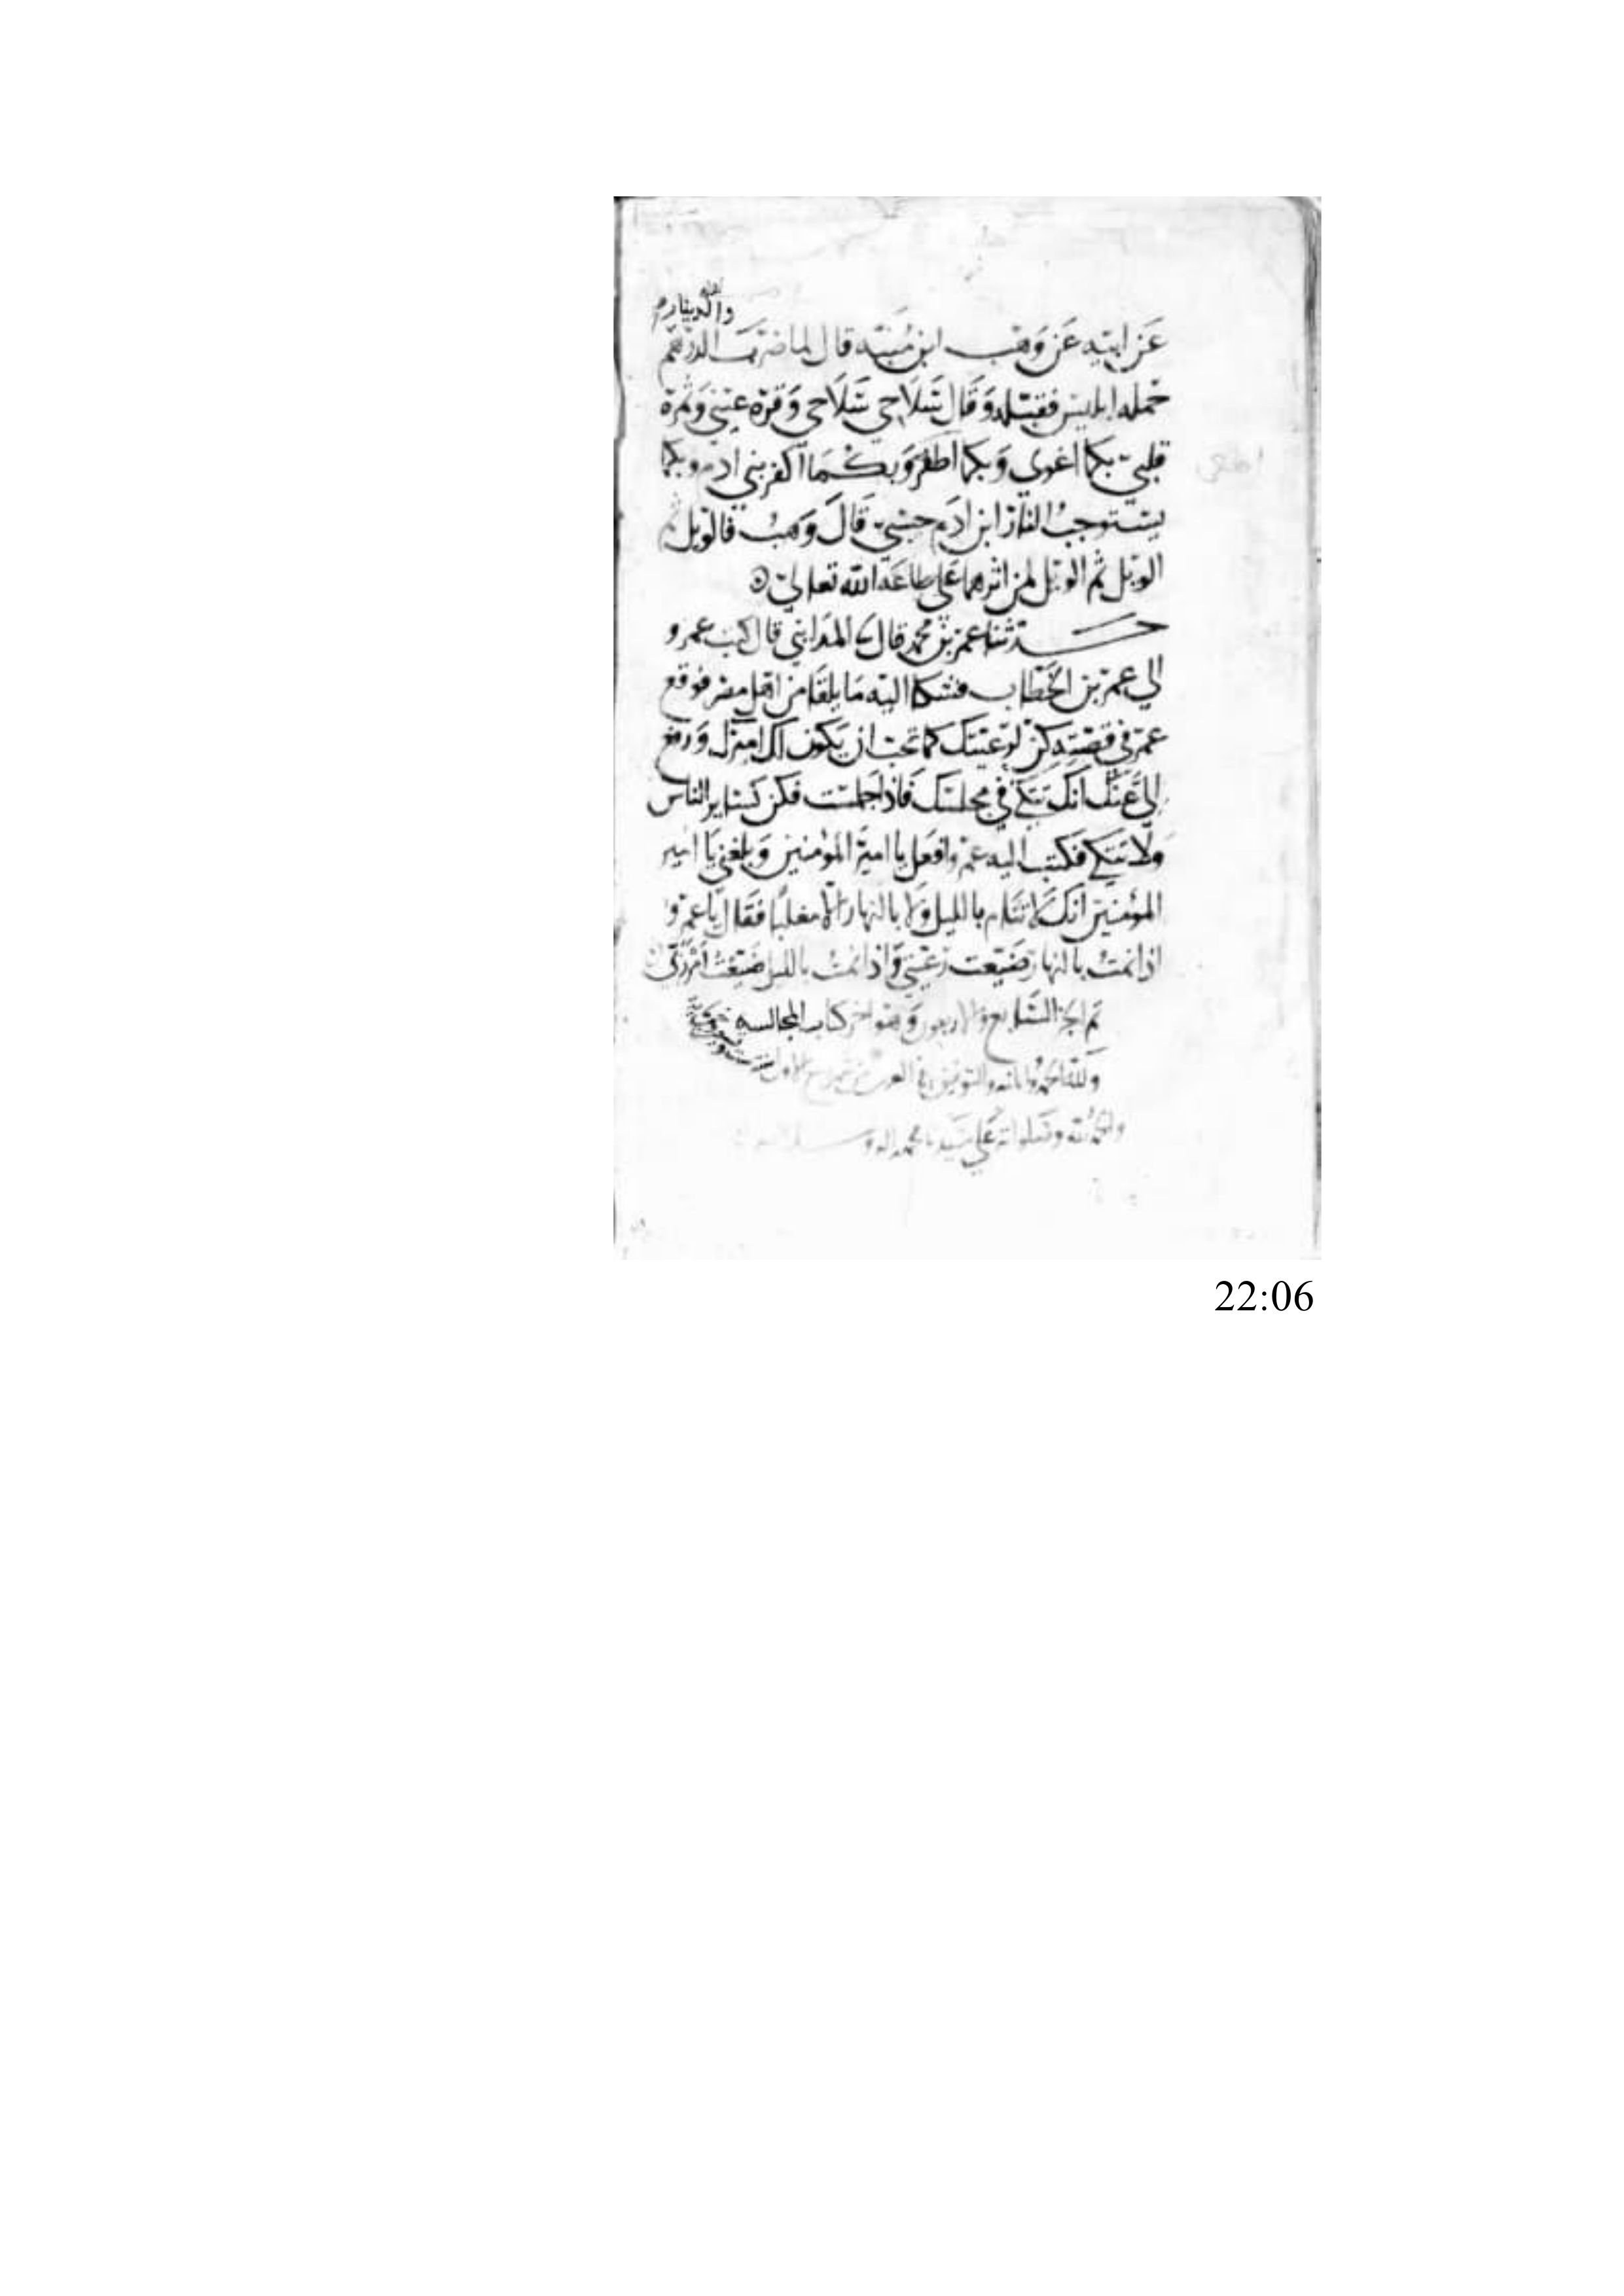 والدينار
عَن ابيه عَن وَهب ابن مُنَبّه قال لما ضرب الدرهم
حمله ابليس فقبله وَقَال سَلاحي سَلاحي وَقرة عيني وَثمرة
قلبي بكما اغوي وَبكما اطغي وَبكما اكفر بني ادم وبكما
يستوجبُ النار ابن ادَم حسبي قَالَ وَهبُ فالويل ثم
الويل ثم الويل لمن اثرهما عَلى طاعَة الله تعالي
حدثنا عمر بن محمد قال المدايني قال كتب عمرو
الي عمر بن الخطاب فشكا اليه مَا يلقا من اهل مصر فوقع
عمر في قصته كن لرعيتك كما تحب ان يكون لك اميرك وَرفع
الي عَنك انك تتكي في مجلسك فَاذا جلست فكن كساير الناس
ولا تتكي فكتب اليه عمرو افعل يا امير المؤمنين وَبلغني يَا امير
المؤمنين انك لا تنام بالليل وَلا بالنهار الا مغلبًا فقَال يَا عمرو
اذا نمتُ بالنهار ضيعت رَعيتي وَاذا نمتُ بالليل ضيعتُ امر ربي
تم الجز السَابع والاربعون وَهو اخر كتاب المجالسه
ولله الحمد والتوفيق في
والحمد لله وصلواته عَلي سَيدنا محمد واله وسلم
22:06